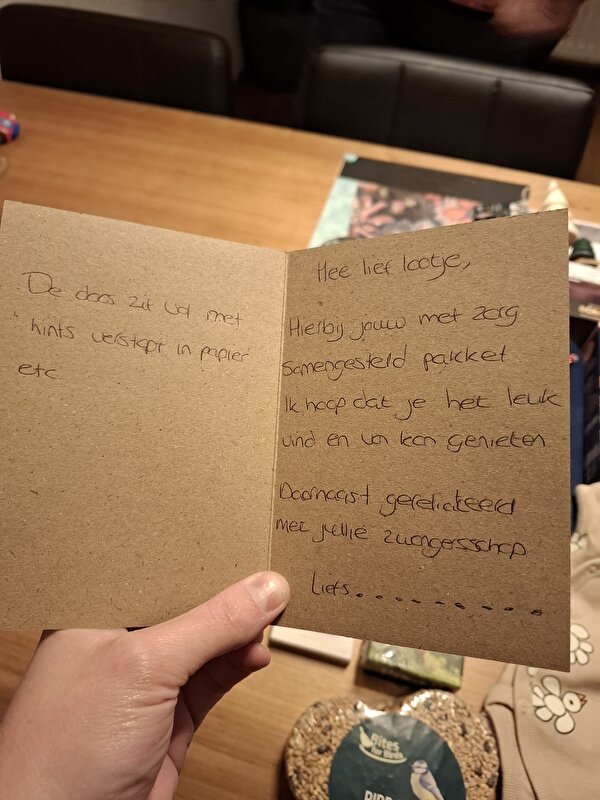 De doos zit vol met
hints verstopt in papier
etc
Hee lief lootje,
Hierbij jouw met zorg
samengesteld pakket
Ik hoop dat je het leuk
vind en van kan genieten
Daarnaast gefeliciteerd
met jullie zwangerschap
Liefs..........
Bites
for Birds
BIRD